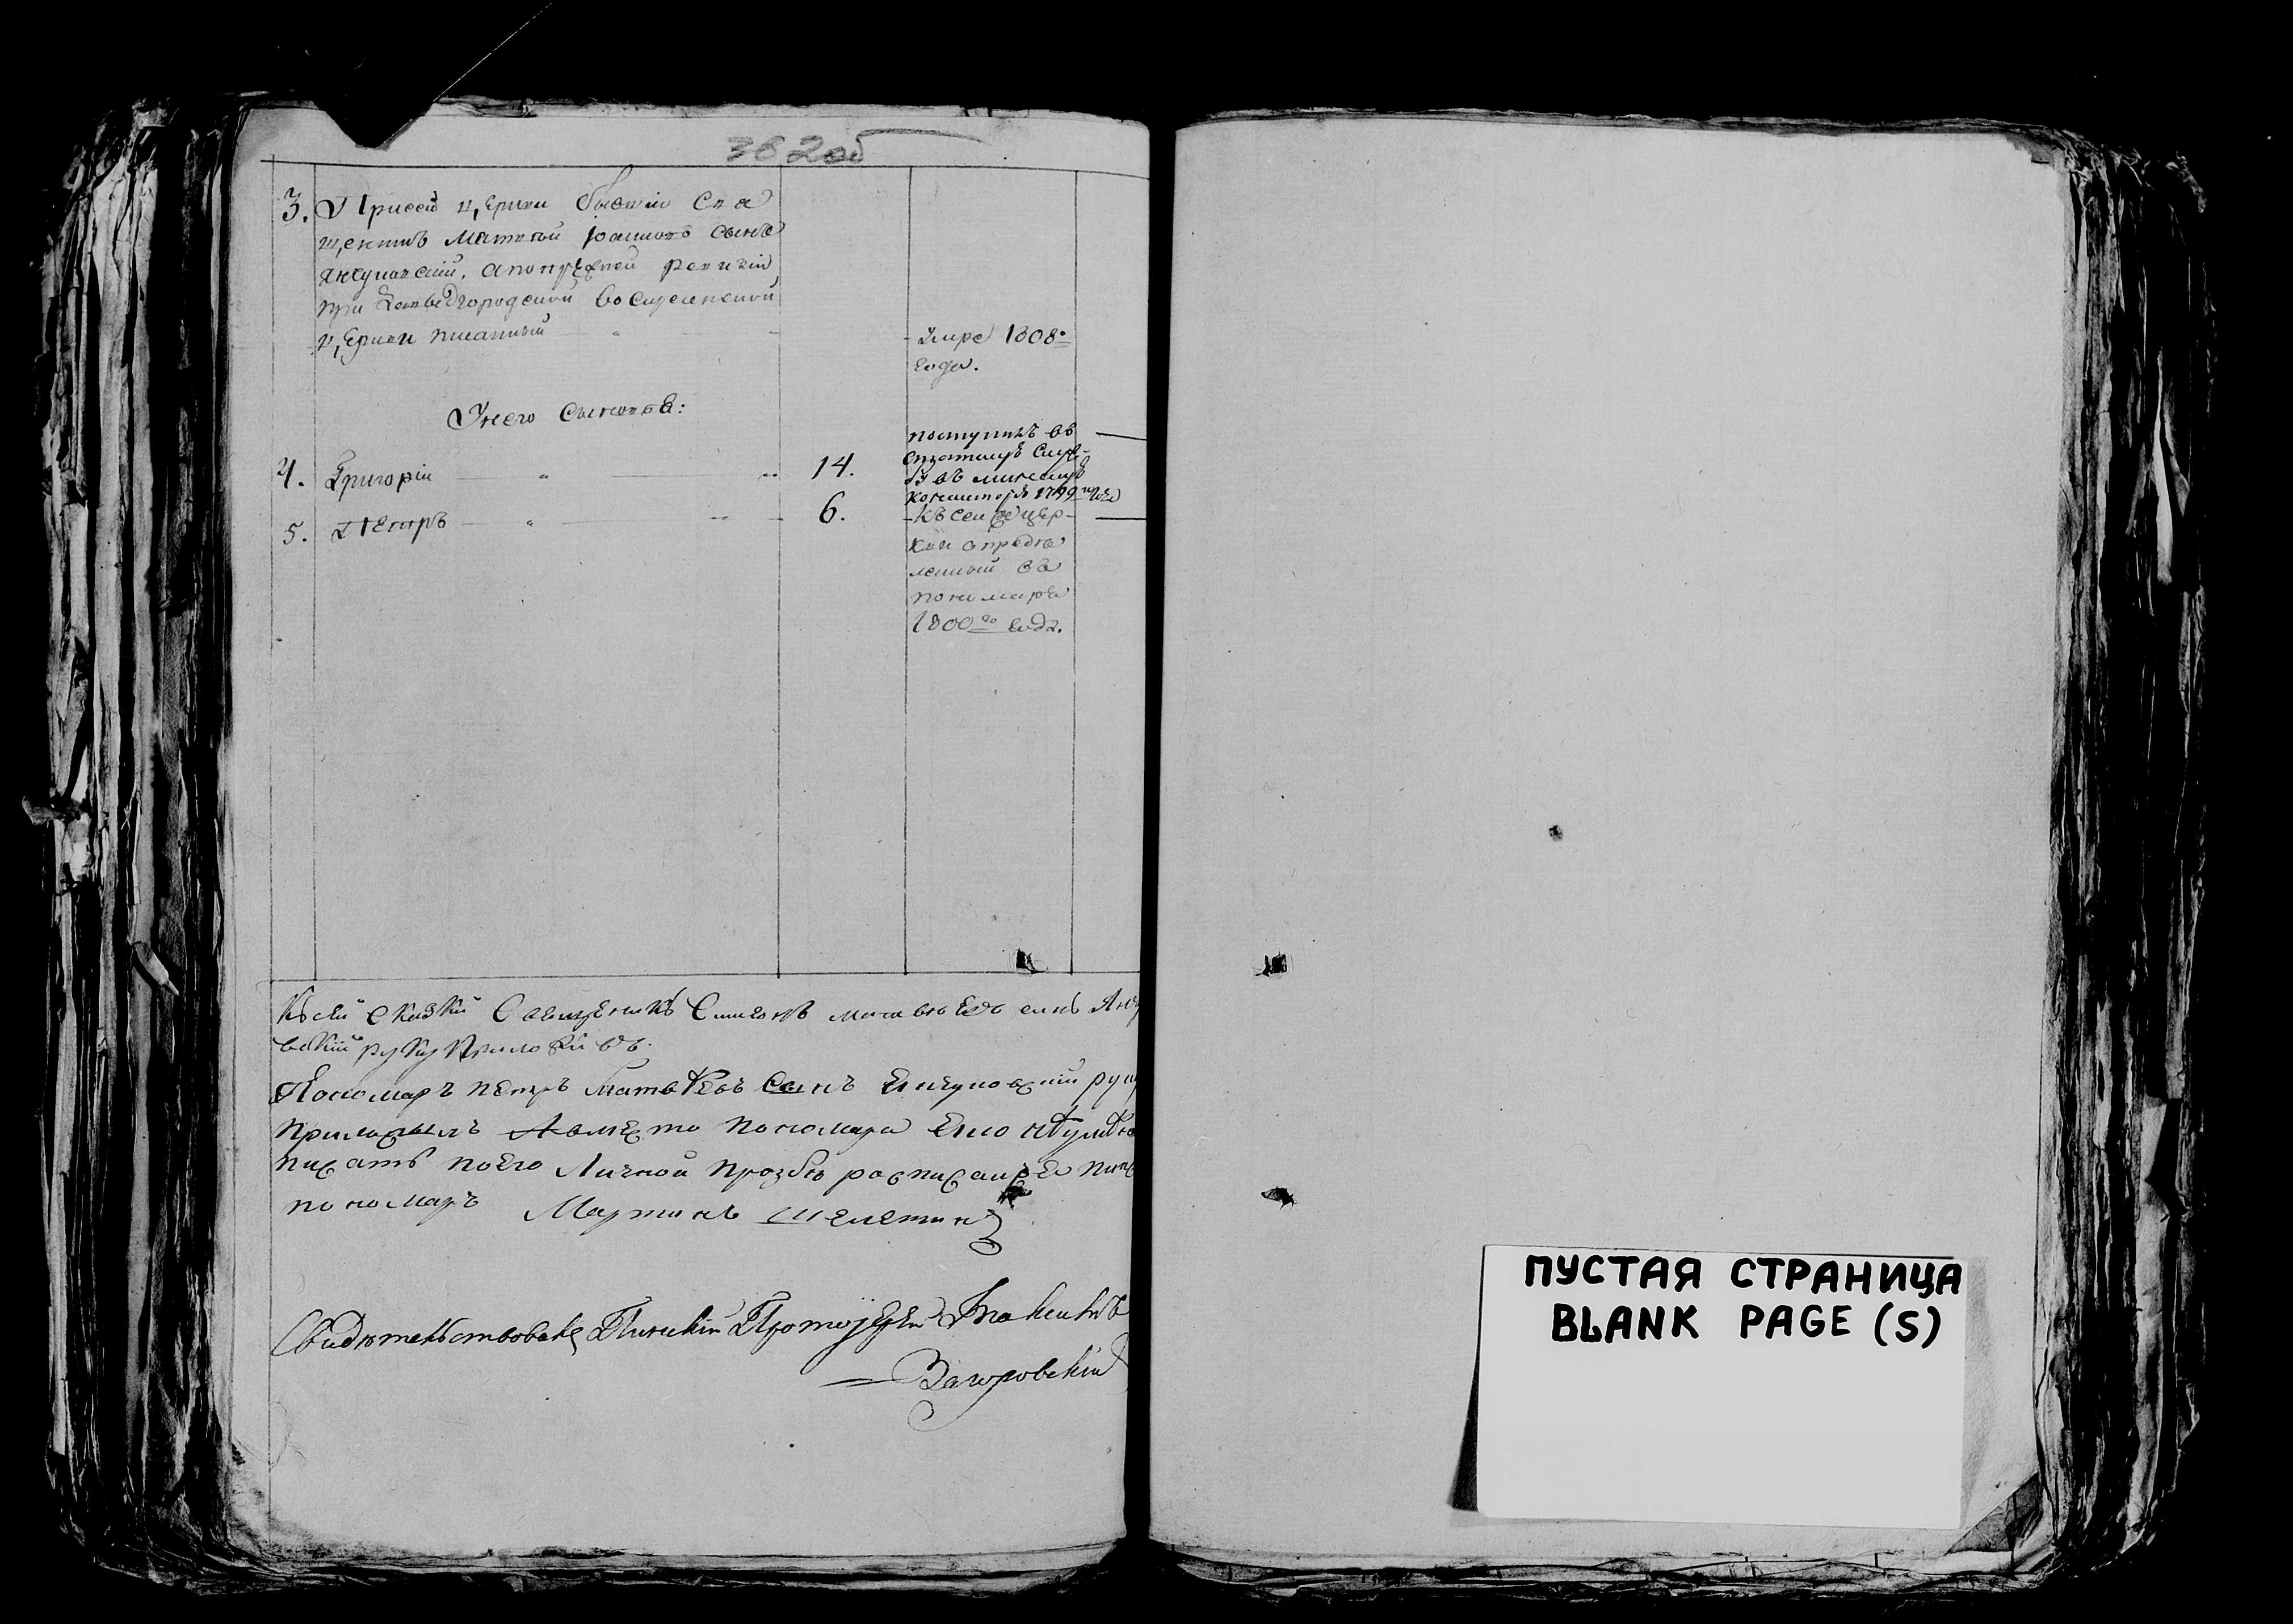 362об
3. При сей церкви бывшій свя
щенникъ Матвей Іоанновъ сынъ
Янкуновскій, а по прежней ревизіи
при Давыдгородской Воскресенской
церкви писанный - умре 1808го
года.
У него сыновья:
4. Григорій 14. поступилъ въ
статскую служ-
бу въ минскую
консисторію 1799го года
5. Петръ 6. къ сей же цер-
кви опредѣ
ленный въ
пономаря
1800го года.
Къ сей скаски Священникъ Симеонъ Матвеевъ синъ
вский руку приложилъ.
Пономаръ Петръ Матвеевъ Синъ Янкуновский руку
приложилъ А вместо пономара
писатъ по его Личной прозбѣ росписался
пономаръ Мартинъ Шелетин
Свидѣтельствовалъ Пинскій Протоіерей
Загоровскій
ПУСТАЯ СТРАНИЦА
BLANK PAGE (S)